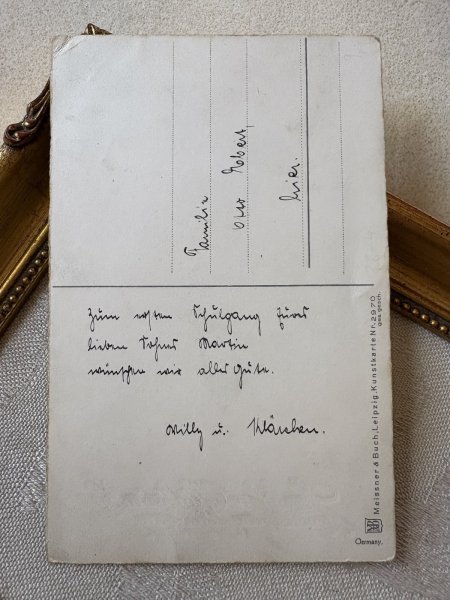 Familie
Otto Ebert,
hier.
Zum ersten Schulgang Eures
lieben Sohnes Martin
wünschen wir alles Gute.
Willy u. Klärchen.
Meissner & Buch, Leipzig. Kunstkarte Nr. 2970
ges. gesch.
M&B
Germany.